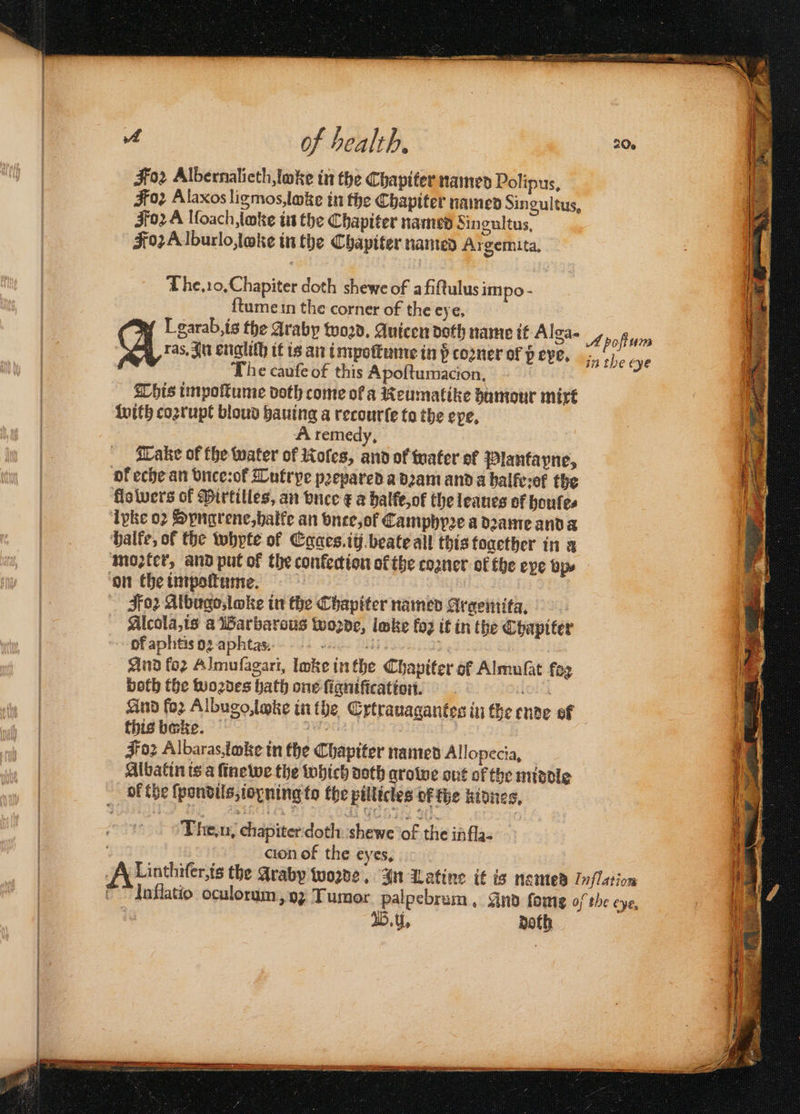 A of health. 20.
For Albernalieth, looke in the Chapiter named Polipus,
For Alaxos ligmos, looke in the Chapiter named Singultus,
For A lfoach, looke in the Chapiter named Singultus,
For A lburlo, looke in the Chapiter named Argemita.
The .10. Chapiter doth shewe of a fistulus impo-
stume in the corner of the eye.
A Lgarab, is the Araby word. Auicen doth name it Alga-
ras. In english it is an impostume in þ corner of þ eye.
Apostum
in the eye
The cause of this Apostumacion.
This impostume doth come of a Reumatike humour mixt
with corrupt bloud hauing a recourse to the eye.
A remedy.
Take of the water of Roses, and of water of Plantayne,
of eche an vnce: of Tutrye prepared a dram and a halfe: of the
flowers of Mirtilles, an vnce & a halfe, of the leaues of houses
lyke or Syngrene, halfe an vnce, of Camphyre a drame and a
halfe, of the whyte of Egges.iij. beate all this together in a
morter, and put of the confection of the corner of the eye vp-
on the impostume.
For Albugo, looke in the Chapiter named Argemita.
Alcola, is a Barbarous worde, looke for it in the Chapiter
of aphtis or aphtas.
And for Almufagari, looke in the Chapiter of Almufat for
both the wordes hath one signification.
And for Albugo, looke in the Extrauagantes in the ende of
this booke.
For Albaras, looke in the Chapiter named Allopecia,
Albatin is a sinewe the which doth growe out of the middle
of the spondils, ioyning to the pillicles of the kidnes.
The .11. chapiter doth shewe of the infla-
cion of the eyes.
A Linthifer, is the Araby worde. In Latine it is named
Inflation
Inflatio oculorum, or Tumor palpebrum. And some
of the eye.
B.ij. doth